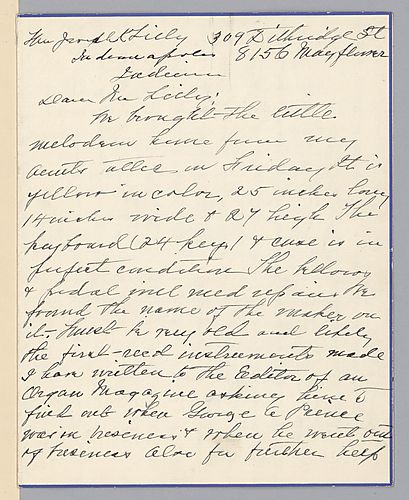 Mr Josiah K Lilly 309 Dithridge St
Indianapolis 8156 Mayflower
Indiana
Dear Mr Lilly:
We brought the little
melodeon home from my
aunts attic on Friday. It is
yellow in color, 25 inches long
14 inches wide & 27 high. The
keyboard (24 keys) & case is in
perfect condition. The bellows
& pedal will need repairs. We
found the name of the maker on
it. Must be very old and likely
the first reed instruments made
I have written to the Editor of an
Organ Magazine asking him to
find out when George A Prince
was in business & when he went out
of business. Also for further help